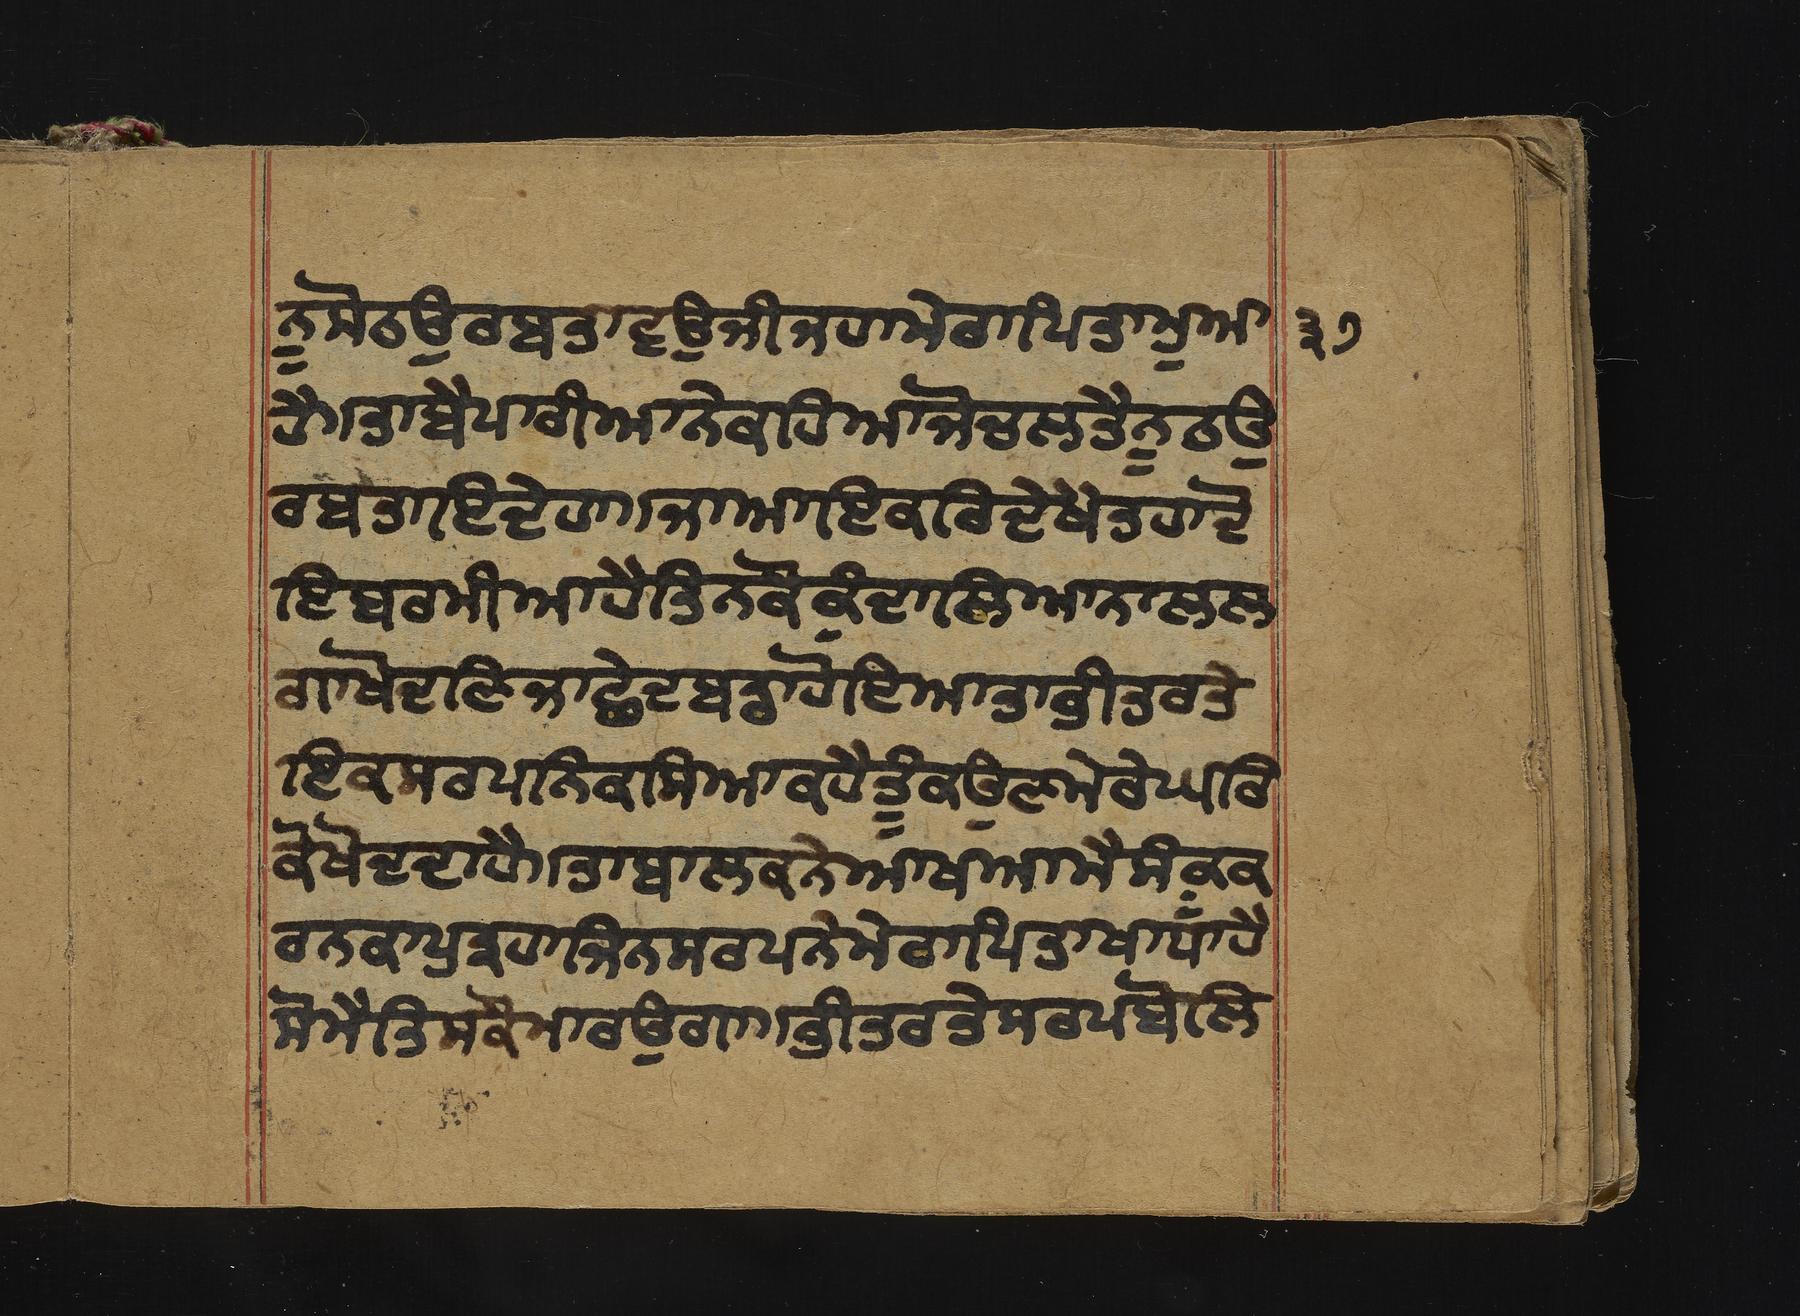 ਨੂਸੋਠਉਰਬਤਾਵਉਜੀਜਹਾਮੇਰਾਪਿਤਾਮੁਆ ੩੭
ਹੈ।ਤਾਬੈਪਾਰੀਆਨੇਕਹਿਆਜੋਚਲਤੈਨੂਠਉ
ਰਬਤਾਇਦੇਹਾ।ਜਾਆਇਕਰਿਦੇਖੇਤਹਾਦੋ
ਇਬਰਮੀਆਹੈਤਿਨਕੋਕੁੰਦਾਲਿਆਨਾਲਲ
ਗਾਖੋਦਣਿਜਾਛੇਦਬਡਾਹੋਇਆਤਾਭੀਤਰਤੇ
ਇਕਸਰਪਨਿਕਸਿਆਕਹੈਤੂੰਕਉਣਮੇਰੇਘਰਿ
ਕੋਖੋਦਦਾਹੈ।ਤਾਬਾਲਕਨੇਆਖਆਮੈਸੰਕੁਕ
ਰਨਕਾਪੁਤ੍ਰਹਾਜਿਨਸਰਪਨੇਮੇਰਾਪਿਤਾਖਾਧਾਹੈ
ਸੋਮੈਤਿਸਕੋਮਾਰਉਗਾ।ਭੀਤਰਤੇਸਰਪਬੋਲਿ